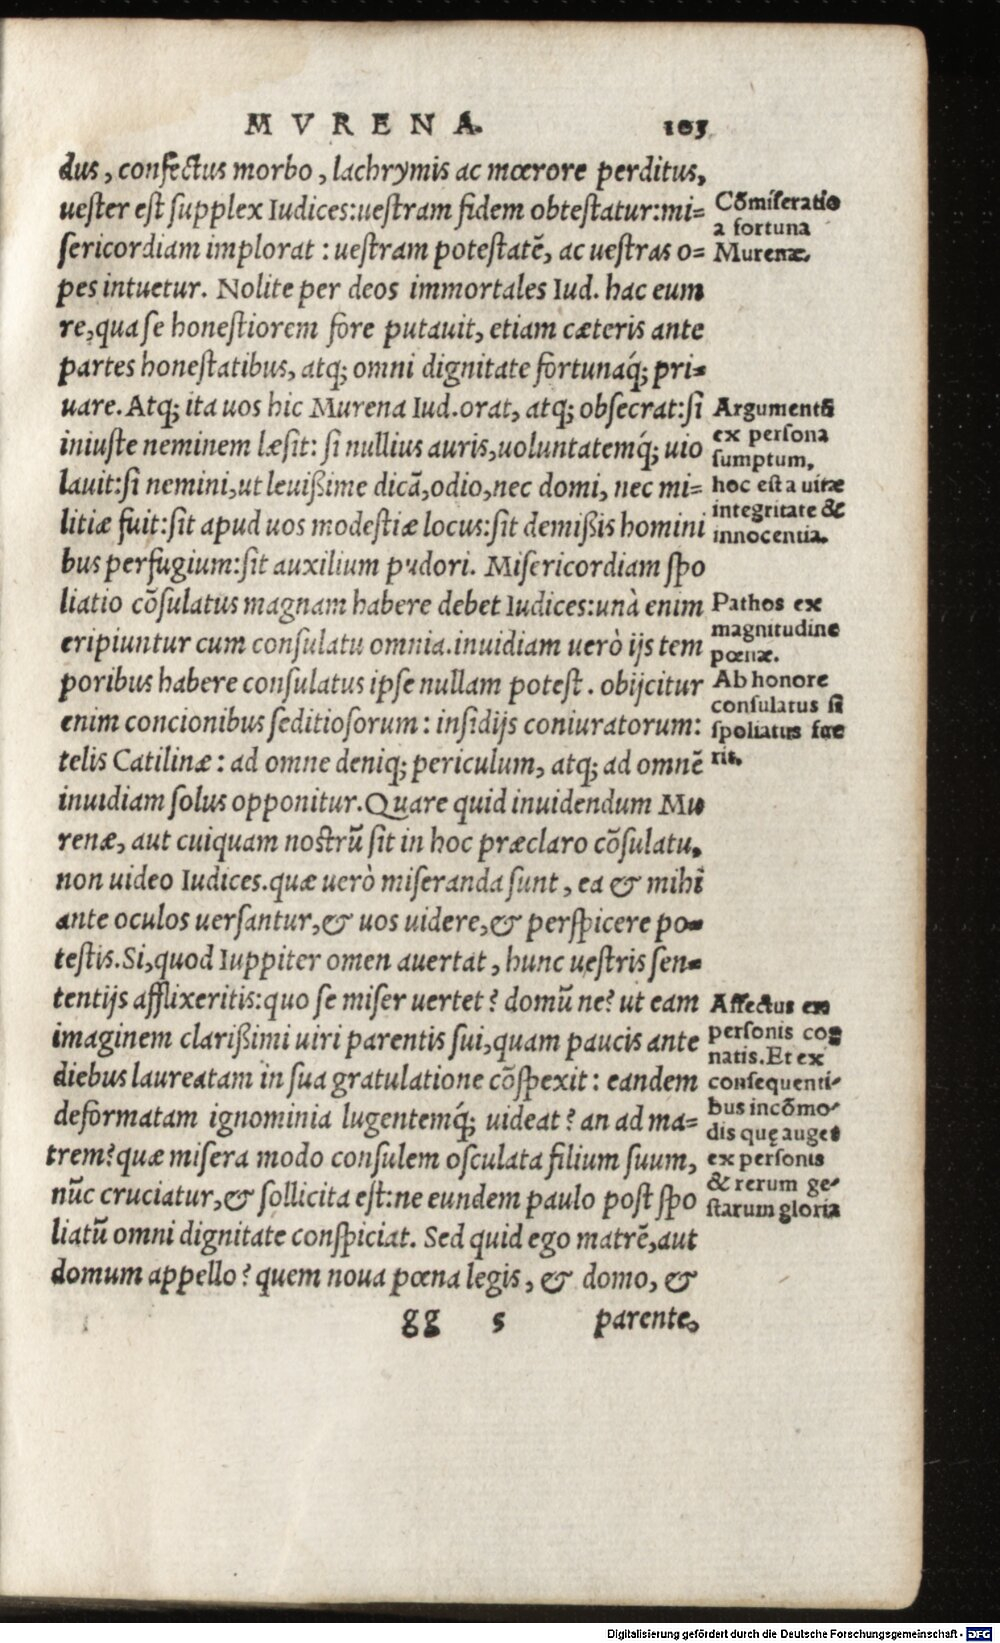 MVRENA. 103
dus, confectus morbo, lachrymis ac mœrore perditus,
uester est supplex Iudices:uestram fidem obtestatur:mi=
sericordiam implorat : uestram potestatẽ, ac uestras o=
pes intuetur. Nolite per deos immortales Iud. hac eum
re,qua se honestiorem fore putauit, etiam cæteris ante
partes honestatibus, atq; omni dignitate fortunaq́; pri=
uare. Atq; ita uos hic Murena Iud.orat, atq; obsecrat:si
iniuste neminem læsit: si nullius auris,uoluntatemq́; uio
lauit:si nemini,ut leuißime dicã,odio,nec domi, nec mi=
litiæ fuit:sit apud uos modestiæ locus:sit demißis homini
bus perfugium:sit auxilium pudori. Misericordiam spo
liatio cõsulatus magnam habere debet Iudices:unà enim
eripiuntur cum consulatu omnia.inuidiam uerò ijs tem
poribus habere consulatus ipse nullam potest . obijcitur
enim concionibus seditiosorum: insidijs coniuratorum:
telis Catilinæ: ad omne deniq; periculum, atq; ad omnẽ
inuidiam solus opponitur.Quare quid inuidendum Mu
renæ, aut cuiquam nostrũ sit in hoc præclaro cõsulatu,
non uideo Iudices.quæ uerò miseranda sunt, ea & mihi
ante oculos uersantur,& uos uidere,& perspicere po=
testis.Si,quod Iuppiter omen auertat, hunc uestris sen=
tentijs afflixeritis:quo se miser uertet? domũ ne? ut eam
imaginem clarißimi uiri parentis sui,quam paucis ante
diebus laureatam in sua gratulatione cõspexit: eandem
deformatam ignominia lugentemq́; uideat? an ad ma=
trem?quæ misera modo consulem osculata filium suum,
nũc cruciatur,& sollicita est:ne eundem paulo post spo
liatũ omni dignitate conspiciat. Sed quid ego matrẽ,aut
domum appello? quem noua pœna legis, & domo, &
gg 5 parente,
Cõmiseratio
a fortuna
Murenæ.
Argumentũ
ex persona
sumptum,
hoc est a uitæ
integritate &
innocentia.
Pathos ex
magnitudine
pœnæ.
Ab honore
consulatus si
spoliatus fue
rit.
Affectus ex
personis cog
natis.Et ex
consequenti-
bus incõmo-
dis quę auget
ex personis
& rerum ge-
starum gloria
Digitalisierung gefördert durch die Deutsche Forschungsgemeinschaft - DFG